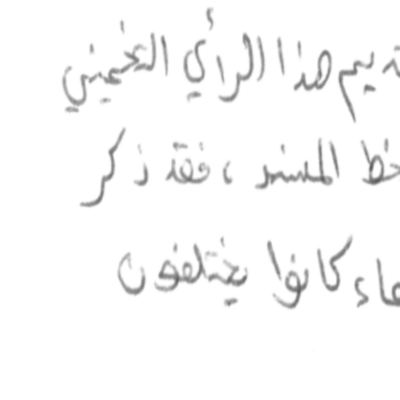 هذا الرأي التخميني
خط المسند ، فقد ذكر
كانوا يختلفون